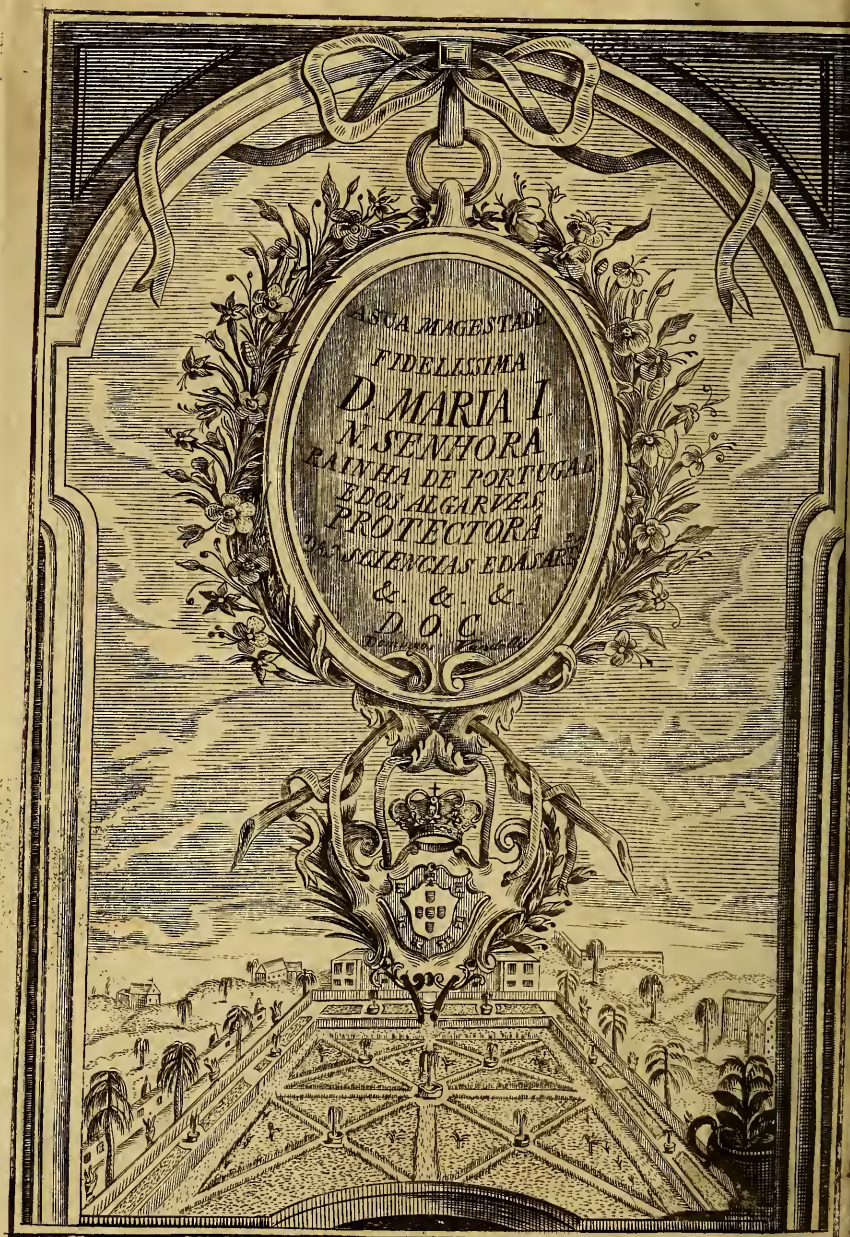 ASUA MAGESTADE
FIDELISSIMA
D. MARIA I.
N. SENHORA
RAINHA DE PORTUGAL
EDOS ALGARVES,
PROTECTORA
DAS SCIENCIAS EDASARTES
&. &. &.
D. O. C.
Domingos Vandelli